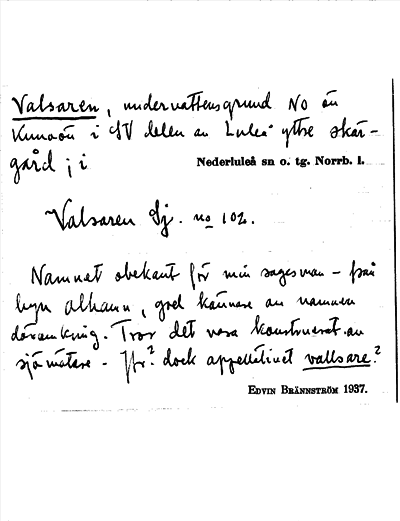 Valsaren, undervattensgrund NO om
Kunoön i SV delen av Luleå yttre skär-
gård ; i Nederluleå sn o. tg. Norrb. l.
Valsaren Sj. no 102.
Namnet obekant för min sagesman - från
byn Alhamn, god kännare av namnen
däromkring. Tror det vara konstruerat av
sjömätare - Jfr? dock appellativet vallsare?
EDVIN BRÄNNSTRÖM 1937.